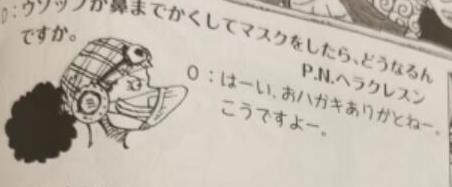 D：ウソップが鼻までかくしてマスクをしたら、どうなるん
ですか。
P.N.ヘラクレスン
O：はーい、おハガキありがとねー。
こうですよー。